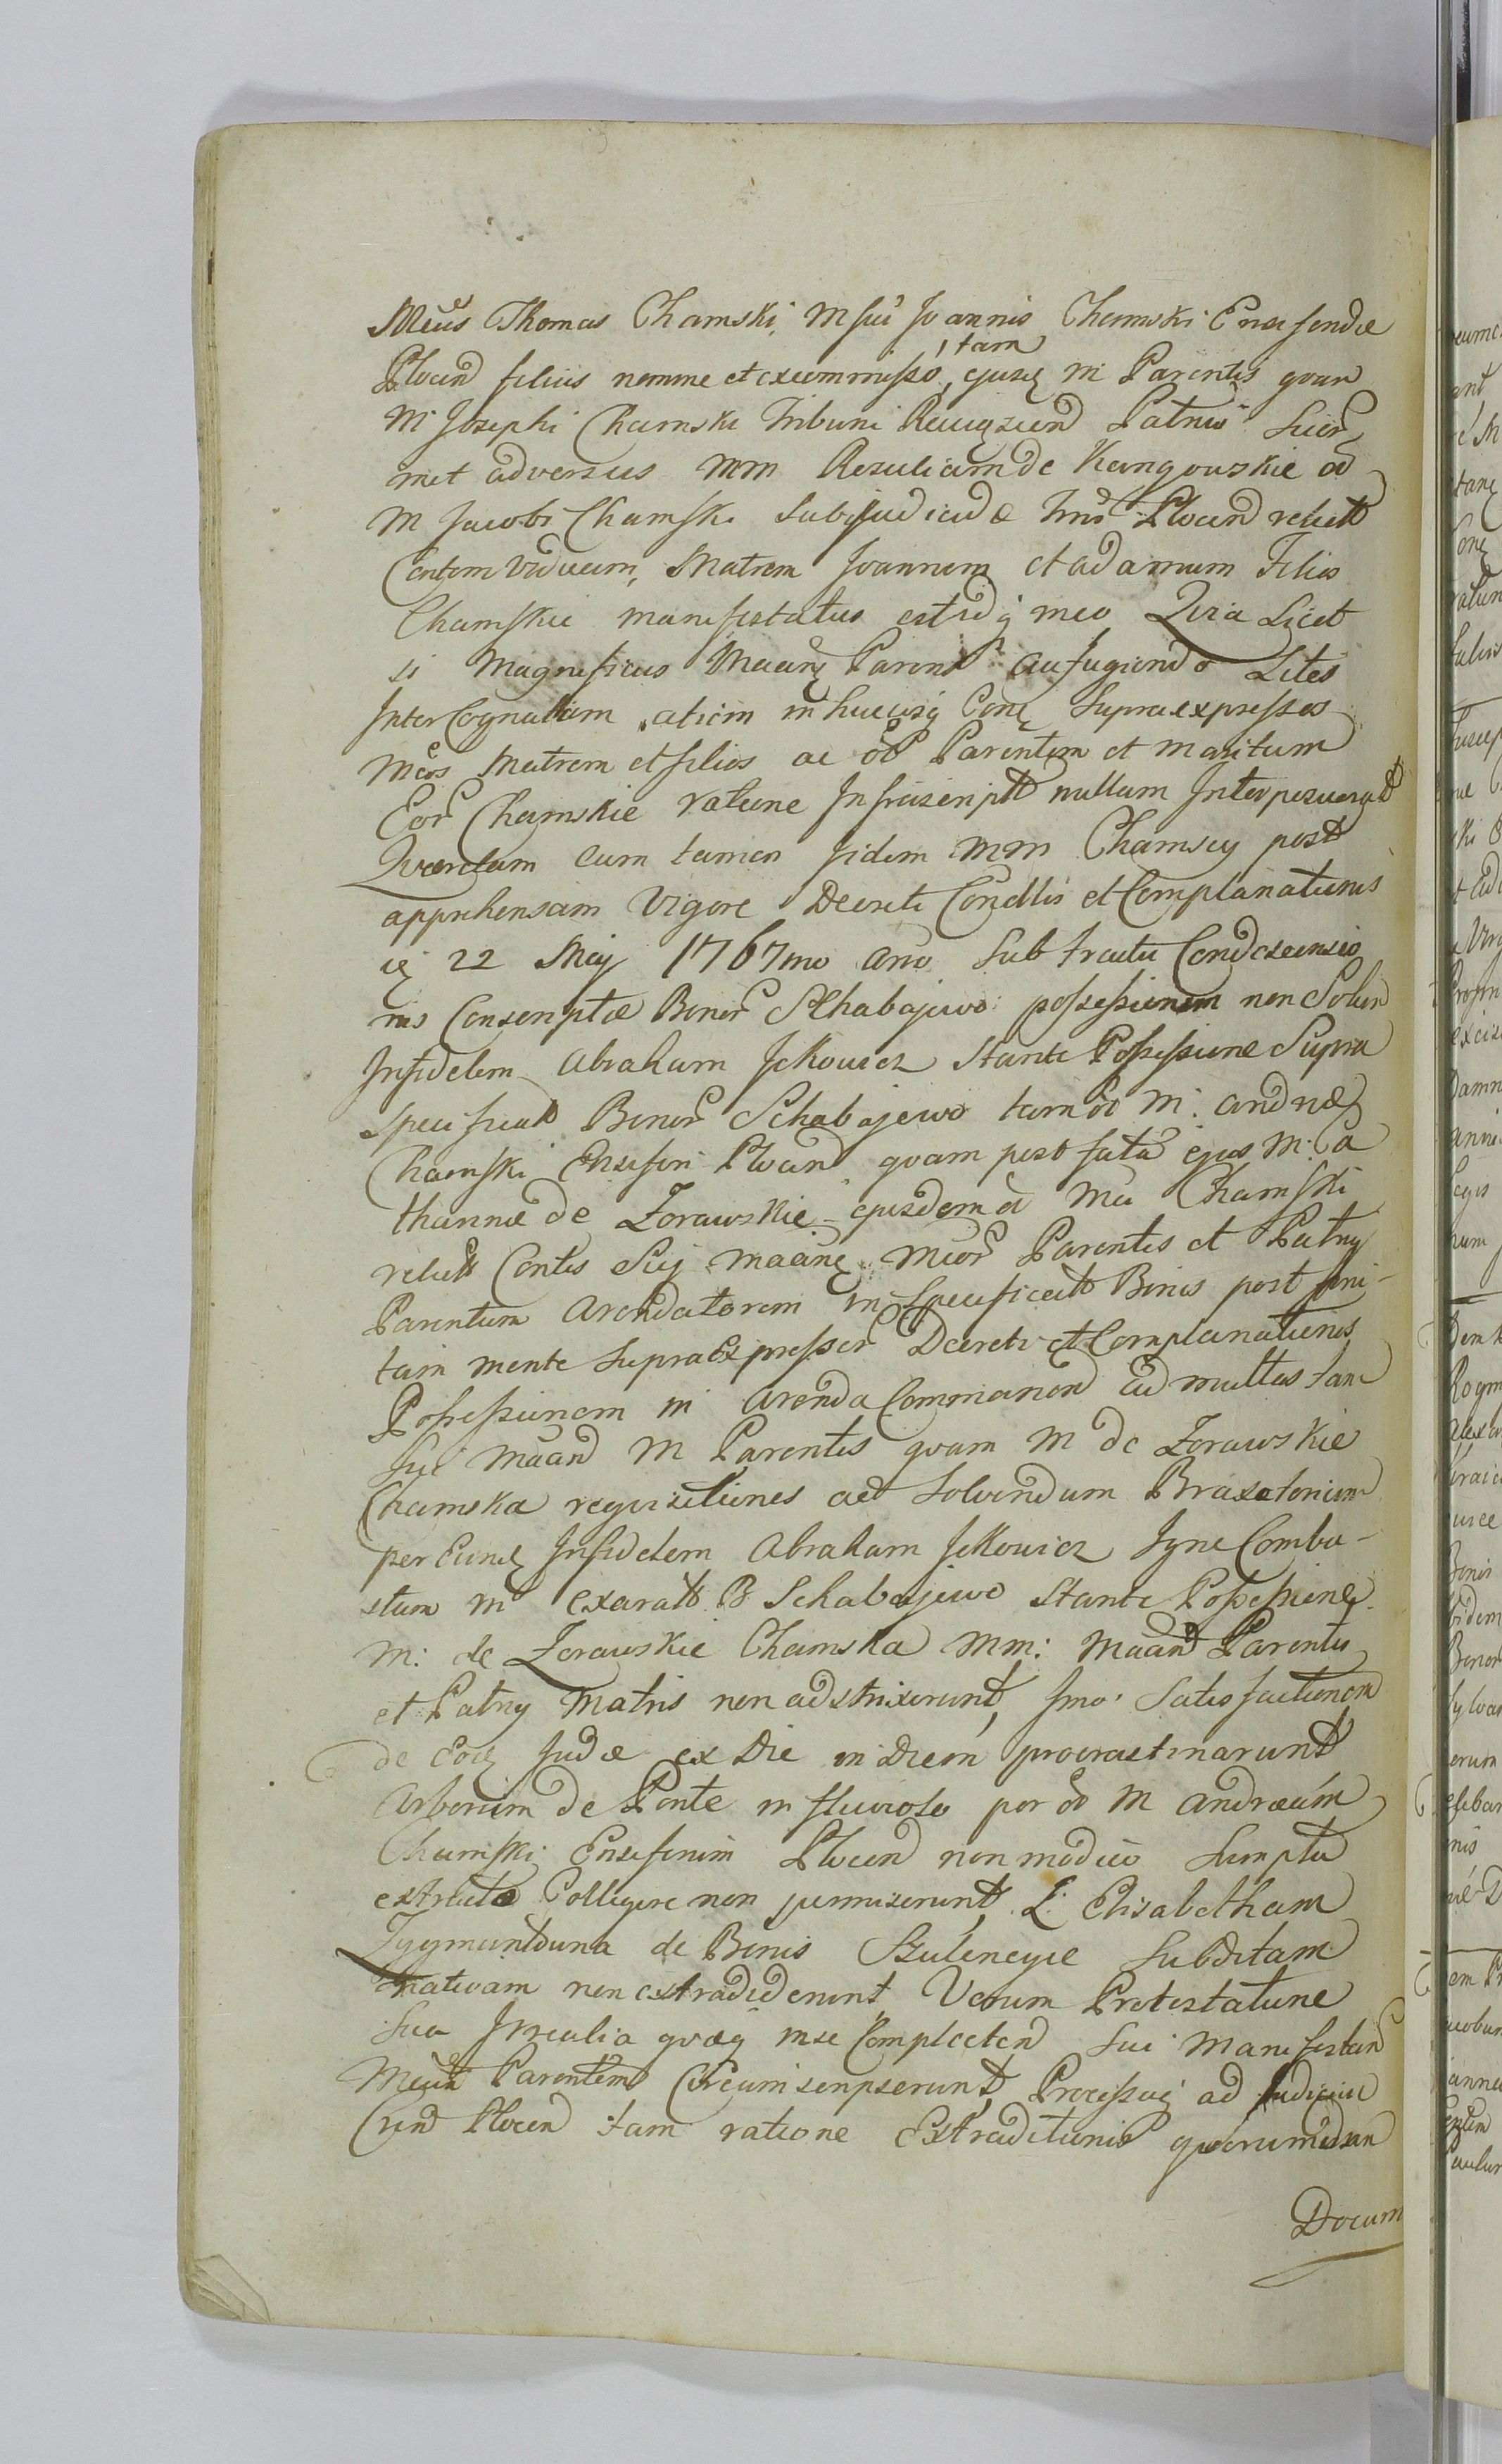 Mcus Thomas Chamski M sui Joannis Chamski Ensiferidae
tam
Plocen filius nomine et ex commisso, ejusq M Parentis quam
M Josephi Chamski Tribuni Patrui Suor
met adversus MM Rosaliam de Kangowskie od
M Jacobi Chamski Subjudicidae Plocen relict
Contem viduam, Matrem Joannem et adamum Filios
Chamskie manifestatus est idq meo Quia Licet
si Magnificus Maanq Parens aufugiendo Lites
Inter Cognatum in hucusq Conq Supra expressos
Mcos Matrem et filios ac ol Parentem et maritum
Eor Chamskie ratione Infrascript nullam Interposuerat
Querelam cum tamen iidem MM Chamscy post
apprehensam vigore Decreti Condllis et Complanationis
22 Maij 1767mo Ano Sub tractu Condescensio
nis Conscriptae Bonor Schabajewo possessionem non Solum
Infidelem Abraham Jckowicz Stante Possessione Supra
specificat Bonor Schabajewo tam ol M. Andreae
Chamski Ensiferi Plocen quam post fata ejus M. Ca
tharinae de Zorawskie ejusdem ol Mci Chamski
relict Contis Sui Maanq Mcor Parentis et Patruy
Parentum Arendatorem in Specificat Bonis post fini-
tam mente Supra Expressor Decreti et Complanationis
Possessionem in Arenda Commanen ad multas tam
sui Maan M Parentis quam M de Zorawskie
Chamska requisitiones ad Solvendum Braxatorium
per Eundq Infidelem Abraham Jckowicz Igne Combu-
stum in exarat B Schabajewo Stante Possessione
M: de Zorawskie Chamska MM: Maan Parentis
et Patruy Matris non adstrinxerunt, Imo Satisfactionem
de Eodq Judae ex Die in Diem procrastinarunt
Arborum de Ponte in fluviolo per ol M Andreaum
Chamski Ensiferum Plocen non modico Sumptu
extructo Colligere non permiserunt, L. Elisabetham
Zygmuntowna de Bonis Subditam
nativam non extradiderunt, Verum Protestatione
sua quaeq in se Complecten sui Manifestan
Mcum Parentem Circumscripserunt, Processuq ad Judicium
Plocen tam ratione Extraditionis quorumdam
Docum